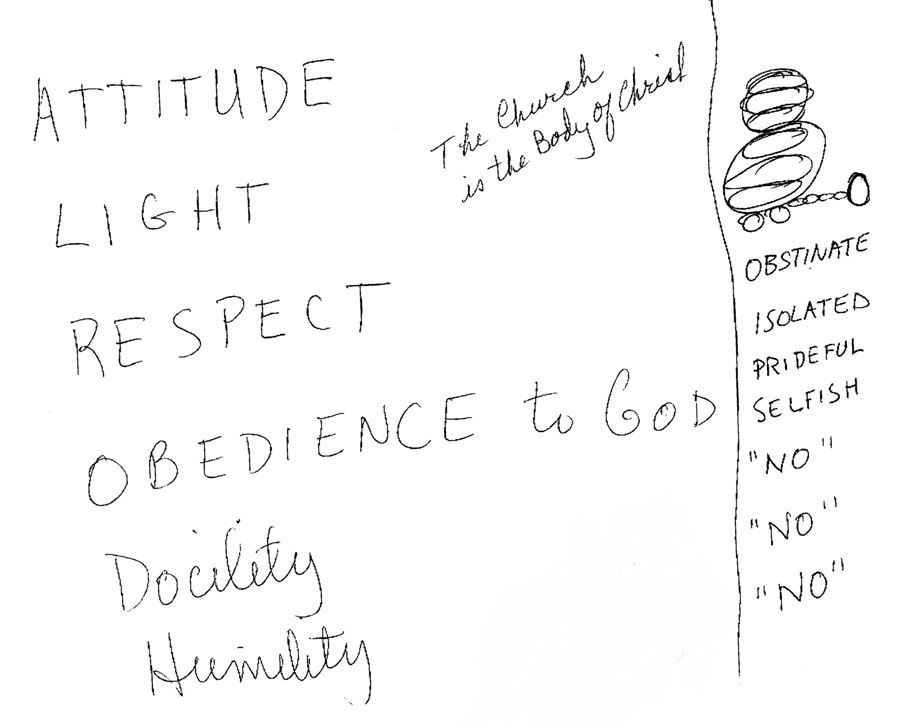 ATTITUDE
The Church
is the Body of Christ
LIGHT
RESPECT
OBEDIENCE to GOD
Docility
Humility
OBSTINATE
ISOLATED
PRIDEFUL
SELFISH
"NO"
"NO"
"NO"